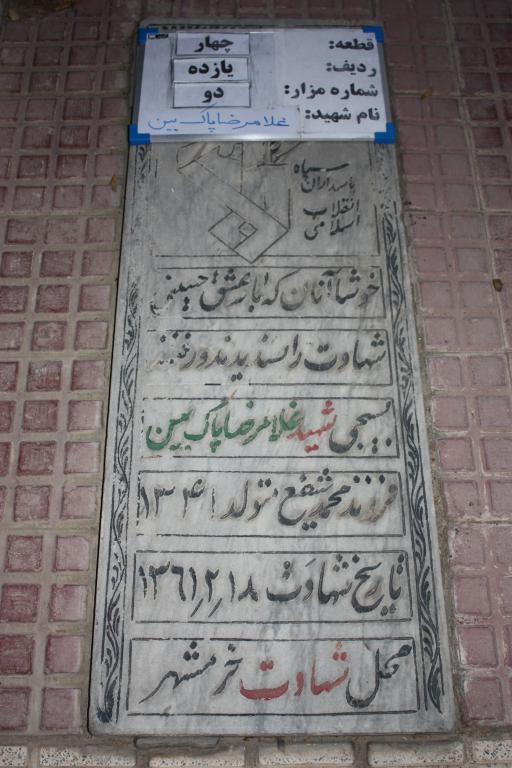 قطعه: چهار
ردیف: یازده
شماره مزار: دو
نام شهید: غلامرضا پاک بین
سپاه
پاسداران
انقلاب
اسلامی
خوشا آنان که با عشق حسینی
شهادت را پسندیدند و رفتند
بسیجی شهید غلامرضا پاک بین
فرزند محمد شفیع متولد ۱۳۴۱
تاریخ شهادت ۱۳۶۱٫۲٫۱۸
محل شهادت خرمشهر